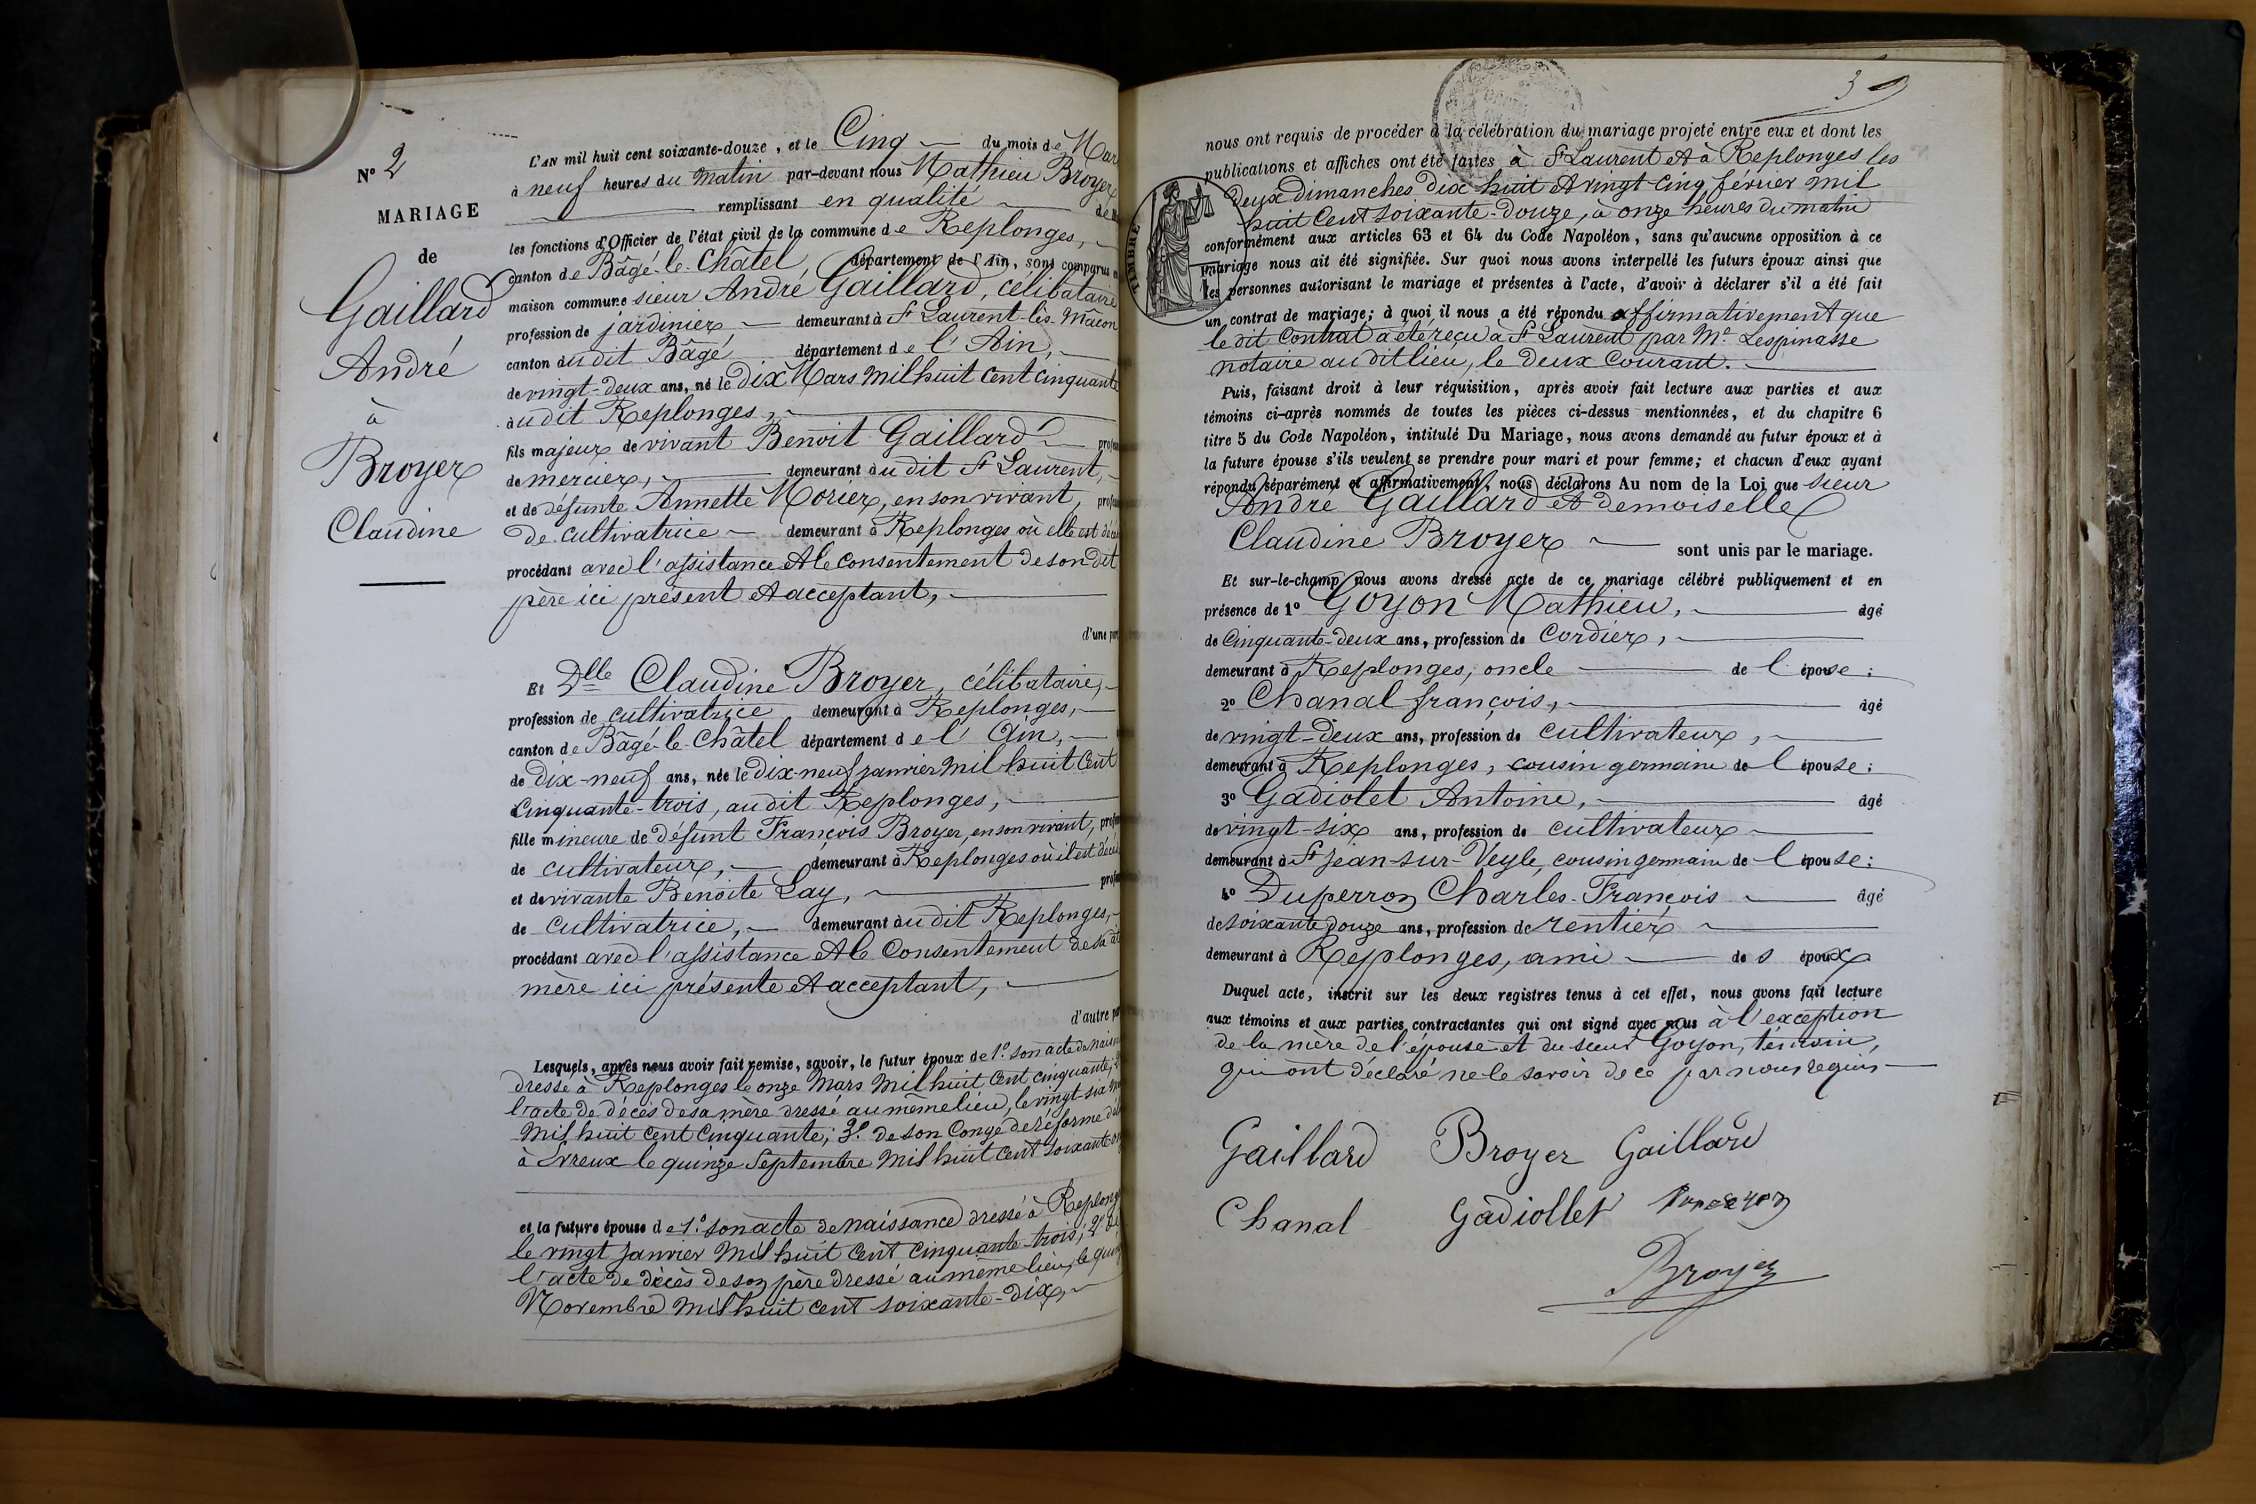 N° 2
MARIAGE
de
Gaillard
André
à
Broyer
Claudine
L'AN mil huit cent soixante-douze, et le Cinq du mois de Mar
à neuf heures du matin par-devant nous Mathieu Broyer
remplissant en qualité de
les fonctions d'Officier de l'état civil de la commune de Replonges,
canton de Bâgé-le-Châtel département de l'Ain, sont comparus e
maison commune sieur André Gaillard, célibataire
profession de jardinier demeurant à St Laurent-lès-Mâcon
canton dudit Bâgé département de l'Ain,
de vingt-deux ans, né le dix Mars mil huit cent cinquante
audit Replonges,
fils majeur de vivant Benoit Gaillard profes
de mercier, demeurant audit St Laurent,
et de défunte Annette Morier, en son vivant, profes
de cultivatrice demeurant à Replonges où elle est décé
procédant avec l'assistance et le consentement de son dit
père ici présent et acceptant,
d'une par
Et Dlle Claudine Broyer, célibataire,
profession de cultivatrice demeurant à Replonges,
canton de Bâgé-le-Châtel département de l'Ain,
de dix-neuf ans, née le dix-neuf janvier mil huit cent
cinquante-trois, audit Replonges,
fille mineure de défunt François Broyer, en son vivant, profes
de cultivateur, demeurant à Replonges où il est décé
et de vivante Benoite Lay, profes
de cultivatrice, demeurant audit Replonges,
procédant avec l'assistance et le consentement de sa dit
mère ici présente et acceptant,
d'autre pa
Lesquels, après nous avoir fait remise, savoir, le futur époux de 1° son acte de naissan
dressé à Replonges le onze Mars mil huit cent cinquante; 2°
l'acte de décès de sa mère dressé au même lieu, le vingt-six
mil huit cent cinquante; 3° de son congé de réforme dél
à Evreux le quinze Septembre mil huit cent soixante-on
et la future épouse de 1° son acte de naissance dressé à Replong
le vingt janvier mil huit cent cinquante-trois; 2° de
l'acte de décès de son père dressé au même lieu, le quin
Novembre mil huit cent soixante-dix,
3
nous ont requis de procéder à la célébration du mariage projeté entre eux et dont les
publications et affiches ont été faites à St Laurent et à Replonges les
deux dimanches dix huit et vingt cinq février mil
huit cent soixante-douze, à onze heures du matin
TIMBRE
conformément aux articles 63 et 64 du Code Napoléon, sans qu'aucune opposition à ce
mariage nous ait été signifiée. Sur quoi nous avons interpellé les futurs époux ainsi que
les personnes autorisant le mariage et présentes à l'acte, d'avoir à déclarer s'il a été fait
un contrat de mariage; à quoi il nous a été répondu affirmativement que
le dit contrat a été reçu à St Laurent par Me Lespinasse
notaire audit lieu, le deux courant.
Puis, faisant droit à leur réquisition, après avoir fait lecture aux parties et aux
témoins ci-après nommés de toutes les pièces ci-dessus mentionnées, et du chapitre 6
titre 5 du Code Napoléon, intitulé Du Mariage, nous avons demandé au futur époux et à
la future épouse s'ils veulent se prendre pour mari et pour femme; et chacun d'eux ayant
répondu séparément et affirmativement, nous déclarons Au nom de la Loi que sieur
André Gaillard et demoiselle
Claudine Broyer sont unis par le mariage.
Et sur-le-champ nous avons dressé acte de ce mariage célébré publiquement et en
présence de 1° Goyon Mathieu, âgé
de cinquante-deux ans, profession de cordier,
demeurant à Replonges, oncle de l'épouse;
2° Chanal françois, âgé
de vingt-deux ans, profession de cultivateur,
demeurant à Replonges, cousin germain de l'épouse;
3° Gadiolet Antoine, âgé
de vingt-six ans, profession de cultivateur
demeurant à St Jean-sur-Veyle, cousin germain de l'épouse;
4° Duperron Charles-François âgé
de soixante douze ans, profession de rentier
demeurant à Replonges, ami des époux
Duquel acte, inscrit sur les deux registres tenus à cet effet, nous avons fait lecture
aux témoins et aux parties contractantes qui ont signé avec nous à l'exception
de la mère de l'épouse et du sieur Goyon, témoin,
qui ont déclaré ne le savoir de ce par nous requis
Gaillard Broyer Gaillard
Chanal Gadiollet Duperron
Broyer